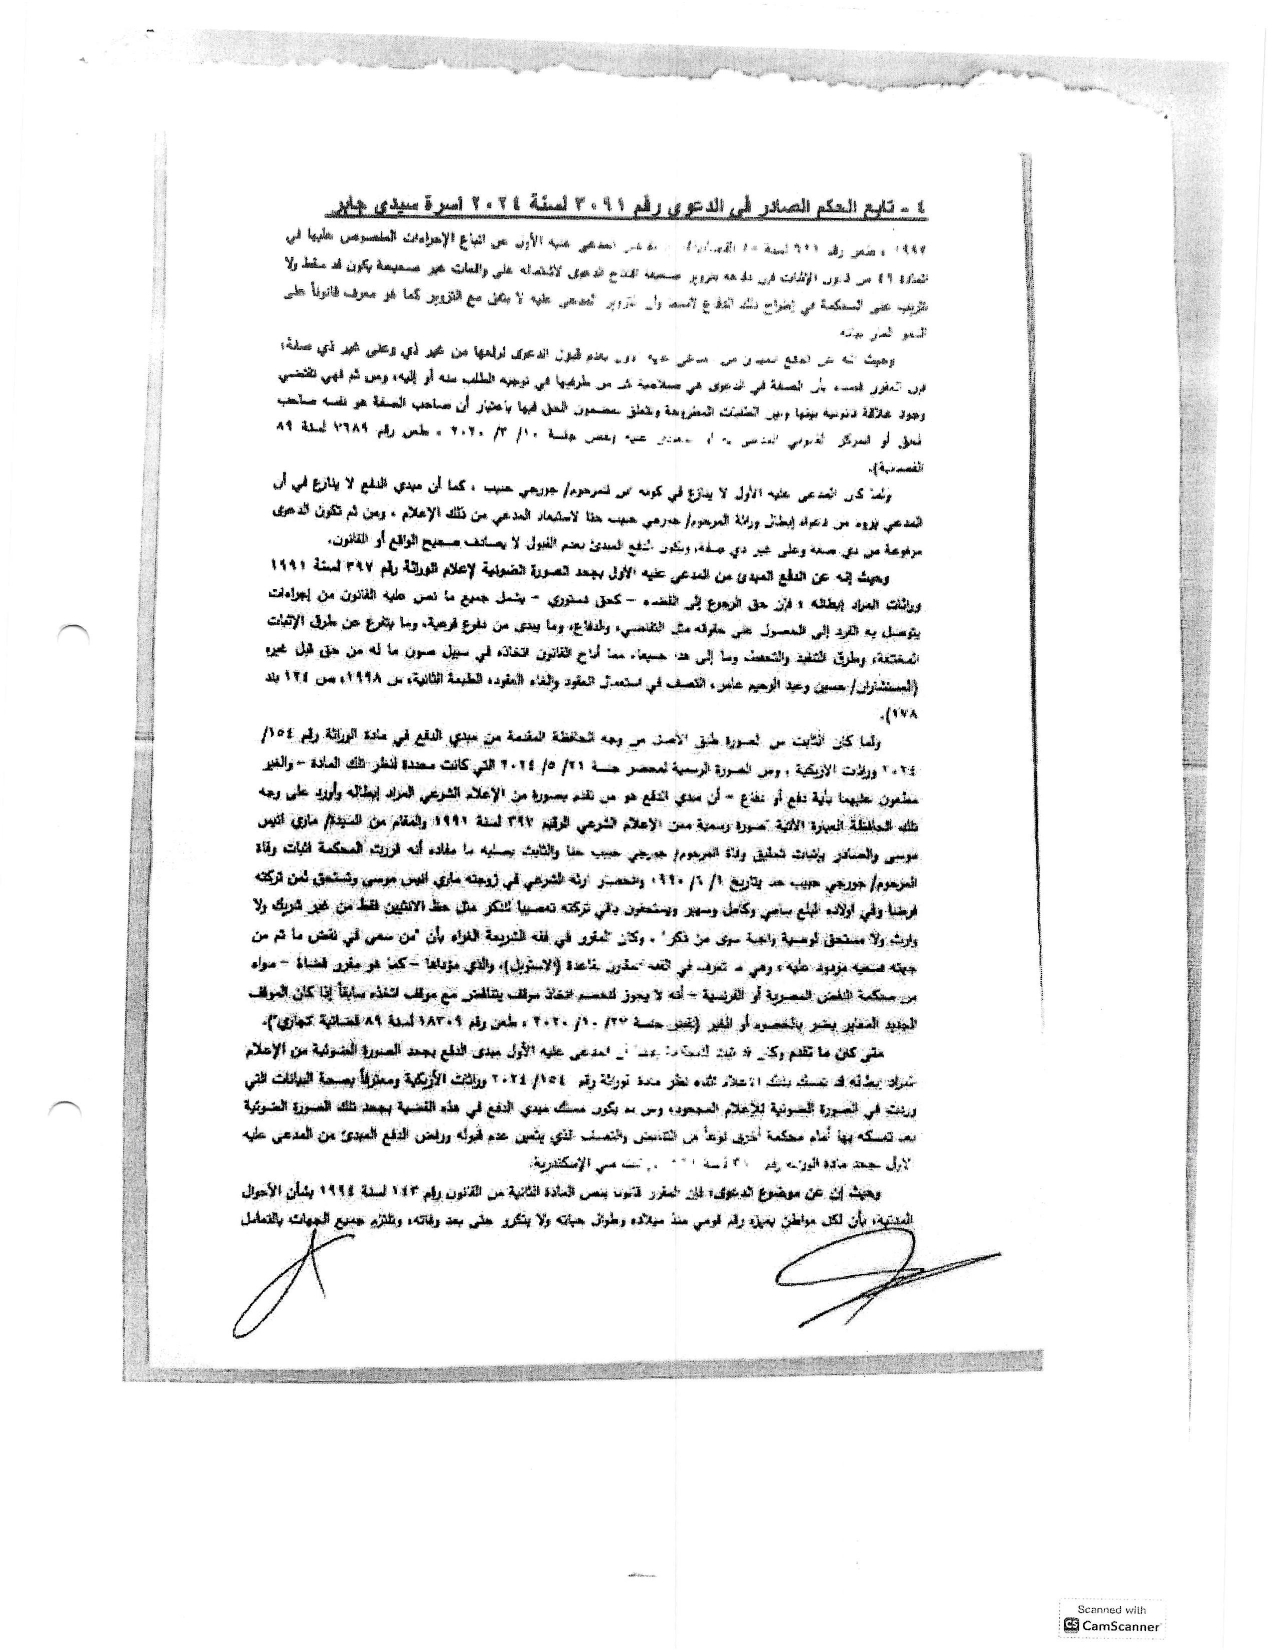 ٤ - تابع الحكم الصادر في الدعوى رقم ٣٠٩١ لسنة ٢٠٢٤ أسرة سيدي جابر
المدعى عليه الأول عن اتباع الإجراءات المنصوص عليها في
المادة ٤٩ من قانون الإثبات في صحيفة الدعوى على واقعات غير صحيحة يكون قد سقط ولا
تثريب على المحكمة في إطراح ذلك الدفاع المدعى عليه لا يتفق مع التزوير كما هو معرف قانوناً على
النحو المار بيانه
وحيث إنه عن الدفع المبدى من المدعى عليه الأول بعدم قبول الدعوى لرفعها من غير ذي وعلى غير ذي صفة؛
فمن المقرر قضاء بأن الصفة في الدعوى هي صلاحية كل من طرفيها في توجيه الطلب منه أو إليه، ومن ثم فهي تقتضي
وجود علاقة قانونية بينها وبين الطلبات المطروحة وتتعلق بمضمون الحق فيها باعتبار أن صاحب الصفة هو نفسه صاحب
الحق أو المركز القانوني المدعى به أو المعتدى عليه جلسة ١٠/ ٣/ ٢٠٢٠ ، طعن رقم ٧٦٨٩ لسنة ٨٩
القضائية).
ولما كان المدعى عليه الأول لا ينازع في كونه للمرحوم/ جورجي حبيب ، كما أن مبدي الدفع لا ينازع في أن
المدعي يروم من دعواه إبطال وراثة المرحوم/ جورجي حبيب حنا لاستبعاد المدعي من ذلك الإعلام ، ومن ثم تكون الدعوى
مرفوعة من ذي صفة وعلى ذي صفة، ويكون الدفع المبدئ بعدم القبول لا يصادف صحيح الواقع أو القانون.
وحيث إنه عن الدفع المبدئ من المدعى عليه الأول بجحد الصورة الضوئية لإعلام الوراثة رقم ٣٩٧ لسنة ١٩٩١
وراثات المراد إبطاله ؛ فإن حق الرجوع إلى القضاء – كحق دستوري – يشمل جميع ما نص عليه القانون من إجراءات
يتوصل به الفرد إلى الحصول على حقوقه مثل التقاضي، والدفاع، وما يبدى من دفوع فرعية، وما يتفرع عن طرق الإثبات
المختلفة، وطرق التنفيذ والتحفظ وما إلى هذا جميعاً، مما أباح القانون اتخاذه في سبيل صون ما له من حق قبل غيره
(المستشاران/ حسين وعبد الرحيم عامر، التعسف في استعمال الحقوق وإلغاء العقود، الطبعة الثانية، س ١٩٩٨، ص ١٢٤ بند
١٧٨).
ولما كان الثابت من الصورة طبق الأصل من وجه الحافظة المقدمة من مبدي الدفع في مادة الوراثة رقم ١٥٤/
٢٠٢٤ وراثات الأزبكية ، ومن الصورة الرسمية لمحضر جلسة ٢١/ ٥/ ٢٠٢٤ التي كانت محددة لنظر تلك المادة – والغير
مطعون عليهما بأية دفع أو دفاع – أن مبدي الدفع هو من تقدم بصورة من الإعلام الشرعي المراد إبطاله وأورد على وجه
تلك الحافظة العبارة الآتية "صورة رسمية من الإعلام الشرعي الرقيم ٣٩٧ لسنة ١٩٩١ والمقام من السيدة/ ماري أنيس
موسى والصادر بإثبات تحقيق وفاة المرحوم/ جورجي حبيب حنا والثابت بصلبه ما مفاده أنه قررت المحكمة اثبات وفاة
المرحوم/ جورجي حبيب حنا بتاريخ ١/ ٦/ ١٩٩٠ وانحصار ارثه الشرعي في زوجته ماري أنيس موسى وتستحق ثمن تركته
فرضاً وفي اولاده البلغ سامي وكامل وسهير ويستحقون باقي تركته تعصيباً للذكر مثل حظ الانثيين فقط من غير شريك ولا
وارث ولا مستحق لوصية واجبة سوى من ذكر" ، وكان المقرر في فقه الشريعة الغراء بأن "من سعى في نقض ما تم من
جهته فسعيه مردود عليه؛ وهي ما تعرف في الفقه المقارن بقاعدة (الاستوبل)، والذي مؤداها – كما هو مقرر قضاء – سواء
من محكمة النقض المصرية أو الفرنسية – أنه لا يجوز للخصم اتخاذ موقف يتناقض مع موقف اتخذه سابقاً إذا كان الموقف
الجديد المغاير يضر بالخصوم أو الغير (نقض جلسة ٢٧/ ١٠/ ٢٠٢٠ ، طعن رقم ١٨٣٠٩ لسنة ٨٩ قضائية تجاري").
متى كان ما تقدم وكان قد ثبت للمحكمة أن المدعى عليه الأول مبدي الدفع بجحد الصورة الضوئية من الإعلام
المراد إبطاله قد تمسك بذلك الإعلام أثناء نظر مادة الوراثة رقم ١٥٤/ ٢٠٢٤ وراثات الأزبكية ومعترفاً بصحة البيانات التي
وردت في الصورة الضوئية للإعلام المجحود، ومن ثم يكون مسلك مبدي الدفع في هذه القضية بجحد تلك الصورة الضوئية
بعد تمسكه بها أمام محكمة أخرى نوعاً من التناقض والتعسف الذي يتعين عدم قبوله ورفض الدفع المبدئ من المدعى عليه
الأول بجحد مادة الوراثة رقم الإسكندرية.
وحيث إن عن موضوع الدعوى؛ فإن المقرر قانونا بنص المادة الثانية من القانون رقم ١٤٣ لسنة ١٩٩٤ بشأن الأحوال
المدنية؛ بأن لكل مواطن يميزه رقم قومي منذ ميلاده وطوال حياته ولا يتكرر حتى بعد وفاته، وتلتزم جميع الجهات بالتعامل
Scanned with
CS CamScanner